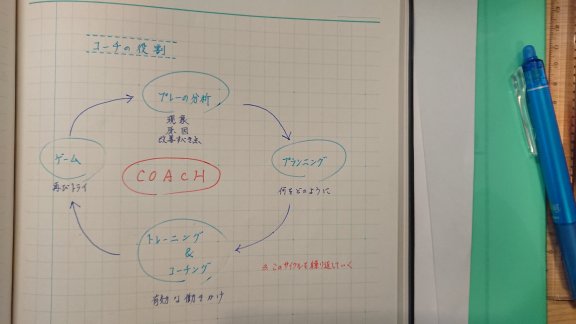 コーチの役割
プレーの分析
現象
原因
改善すべき点
ゲーム
再びトライ
COACH
プランニング
何をどのように
トレーニング
&
コーチング
有効な働きかけ
※このサイクルを繰り返していく